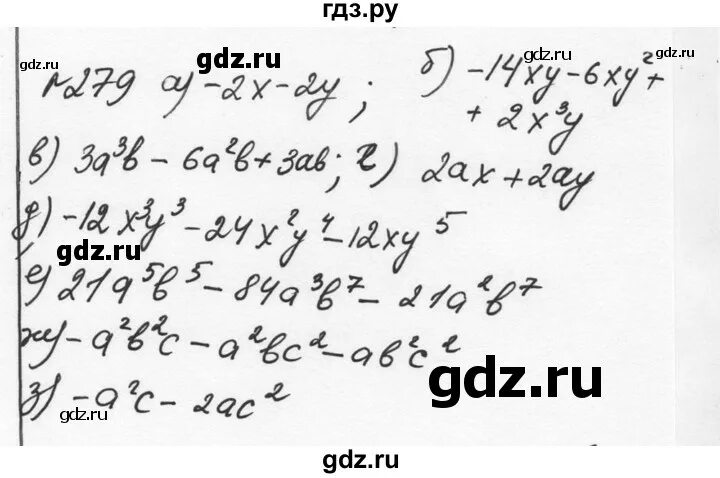 гдз.ру
gdz.ru gdz.ru gdz.ru
№279 а) -2x-2y; б) -14xy-6xy²+
+ 2x³y
в) 3a³b - 6a²b+3ab; г) 2ax+2ay
gdz.ru
д) -12x³y³-24x²y⁴-12xy⁵
gdz.ru
е) 21a⁵b⁵-84a³b⁷-21a²b⁷
ж) -a²b²c-a²bc²-ab²c²
gdz.ru
з) -a²c-2ac²
gdz.ru gdz.ru
gdz.ru